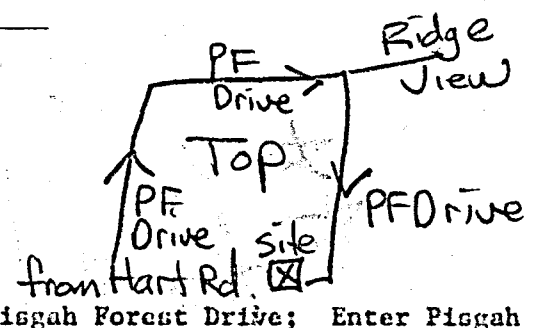 PF
Drive
Ridge
View
Top
PF
Drive
PF Drive
site
from Hart Rd.
isgah Forest Drive; Enter Pisgah